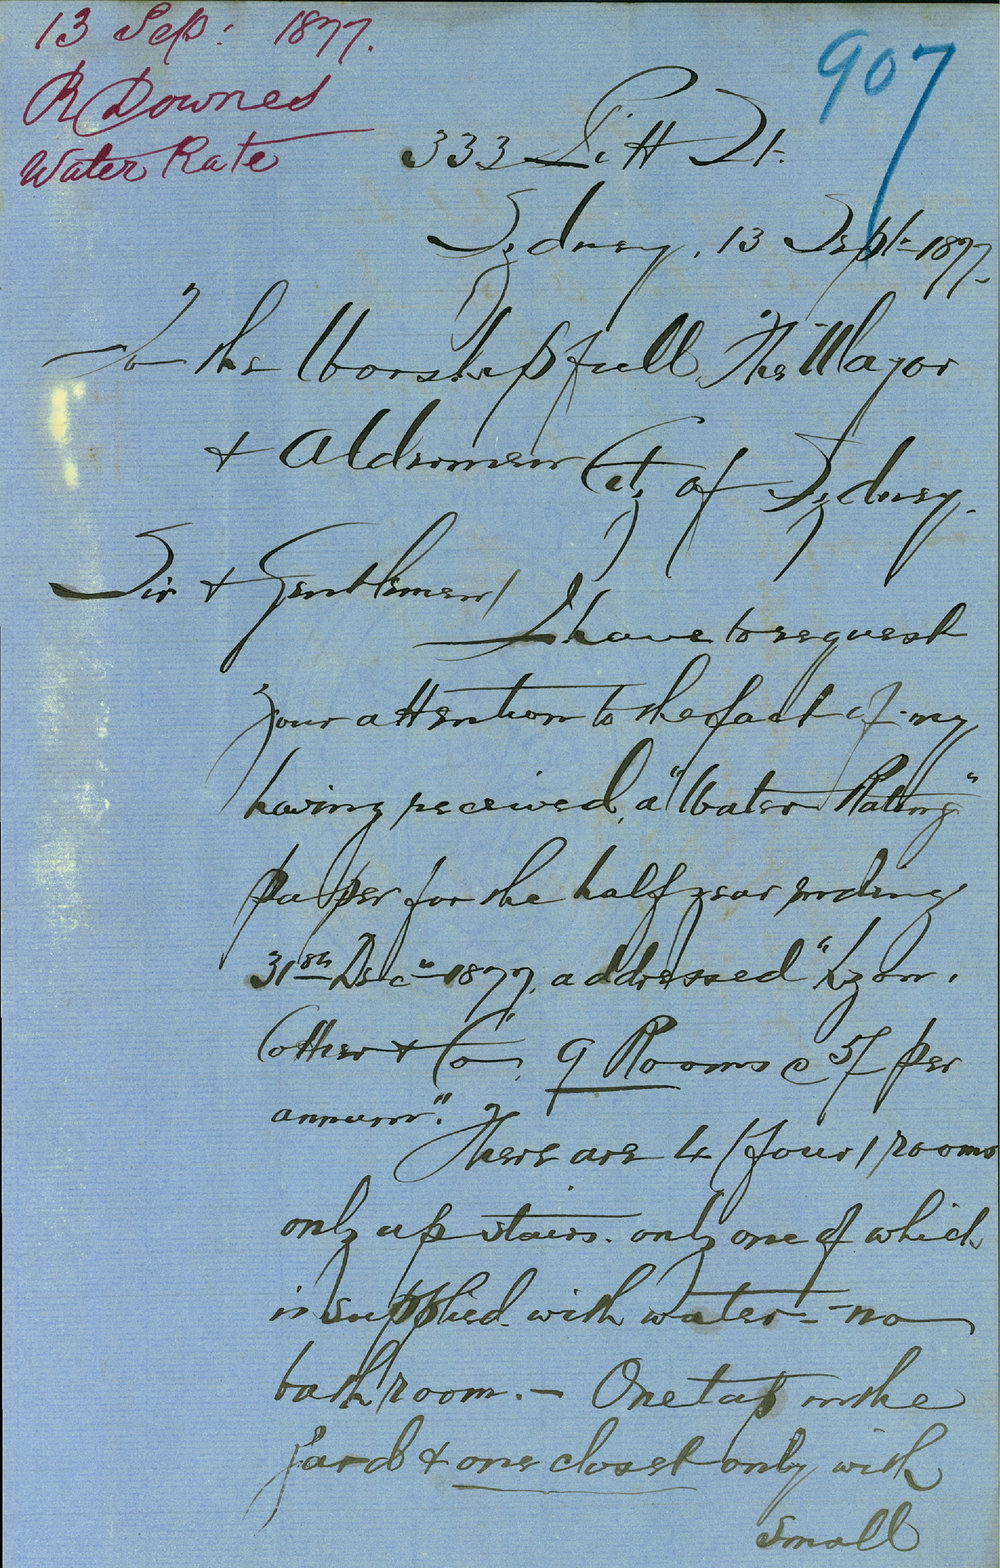 13 Sep: 1877.
R Downes
Water Rate
907
333 Pitt St.
Sydney, 13 Sept. 1877.
To the Worshipfull, "The Mayor
+ Aldermen City of Sydney.
Sir + Gentlemen/
I have to request
your attention to the fact of my
having received, a "Water Rating"
paper for the half year ending
31st Decr 1877, addressed "Lyon,
Cotter + Co, 9 Rooms @ 5/ per
annum".
There are 4 (four) rooms
only up stairs. only one of which
is supplied with water - no
bath room. - One tap in the
yard + one closet only with
small